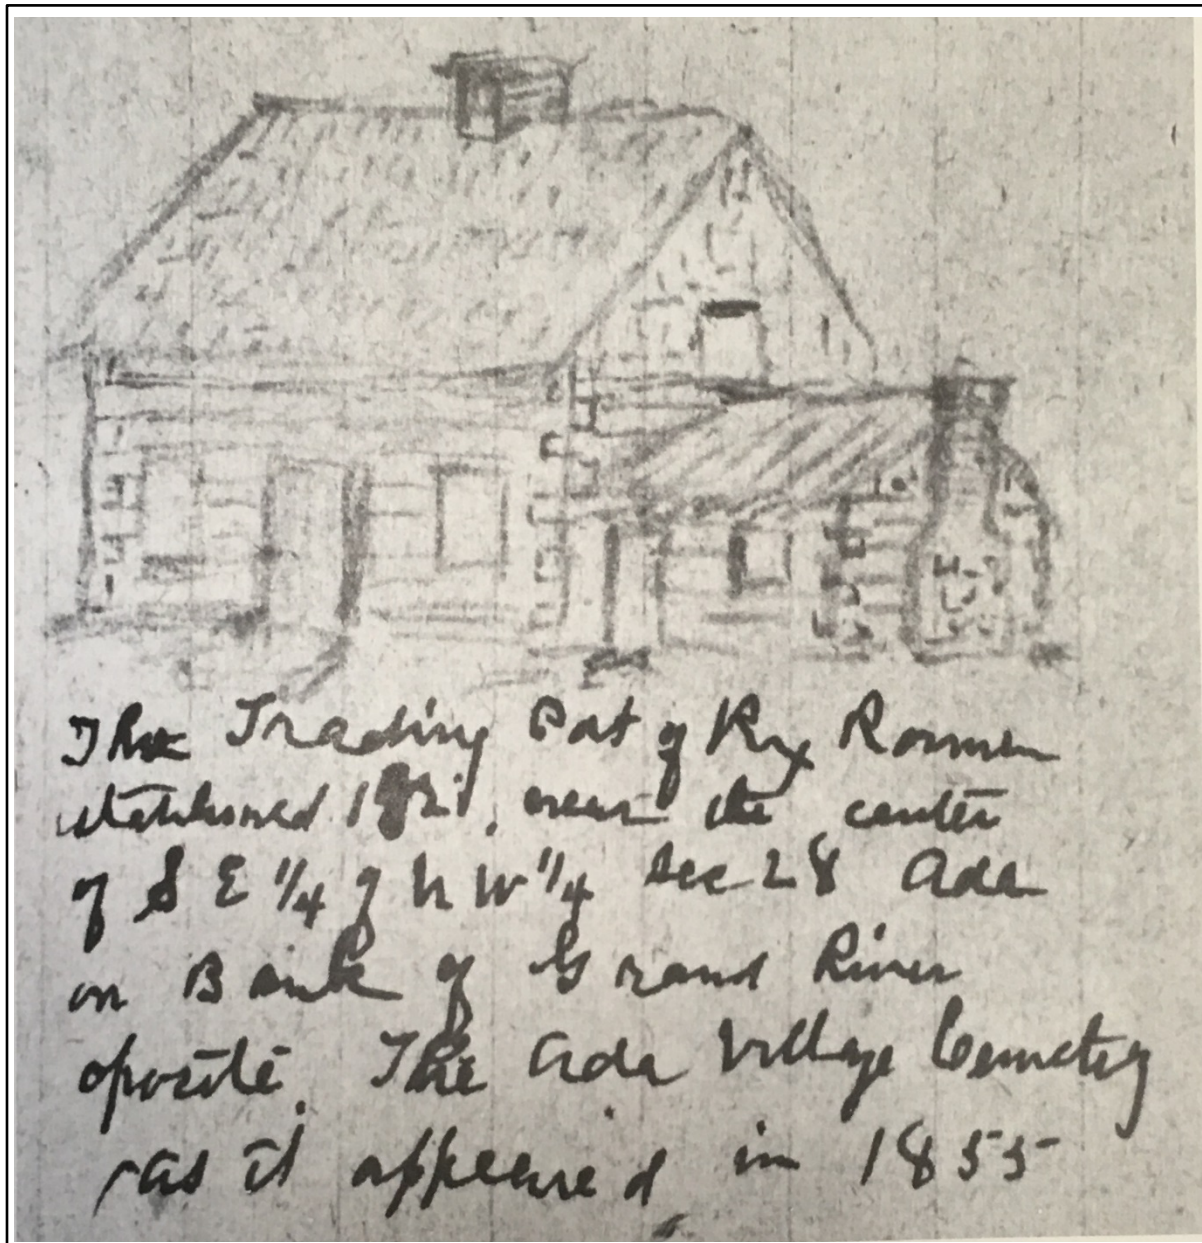 The Trading Post of Rix
established near the center
of S E 1/4 of N W 1/4 Sec 28 Ada
on Bank of Grand River
oposite The Ada Village Cemetery
as it appeared in 1855